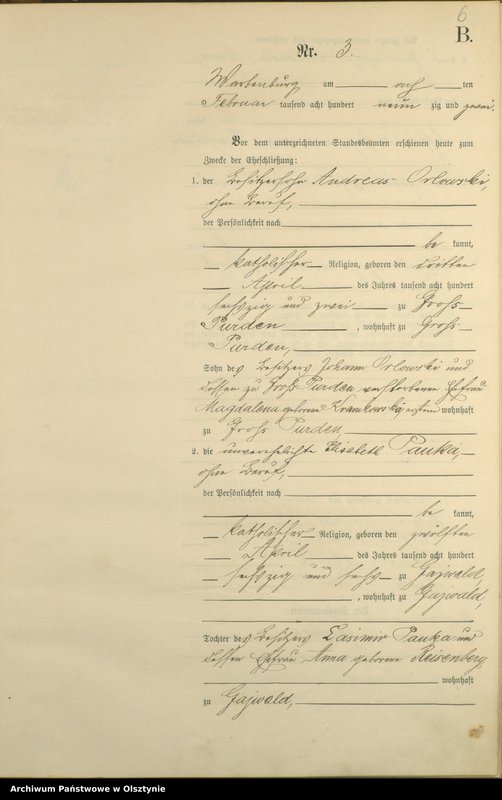 6
B.
Nr. 3.
Wartenburg am acht ten
Februar tausend acht hundert neun zig und zwei.
Vor dem unterzeichneten Standesbeamten erschienen heute zum
Zwecke der Eheschließung:
1. der Besitzersohn Andreas Orlowski,
ohne Beruf,
der Persönlichkeit nach
be kannt,
katholischer Religion, geboren den dritten
April des Jahres tausend acht hundert
sechszig und zwei zu Groß-
Purden, wohnhaft zu Groß-
Purden,
Sohn des Besitzers Johann Orlowski und
dessen zu Groß Purden verstorbenen Ehefrau
Magdalena geborene ersterer wohnhaft
zu Groß Purden,
2. die unverehelichte Elisabeth Pauka,
ohne Beruf,
der Persönlichkeit nach
be kannt,
katholischer Religion, geboren den zwölften
April des Jahres tausend acht hundert
sechszig und sechs zu Gajwald,
, wohnhaft zu Gajwald,
Tochter des Besitzers Casimir Pauka und
dessen Ehefrau Anna geborene Reisenberg
wohnhaft
zu Gajwald,
Archiwum Państwowe w Olsztynie